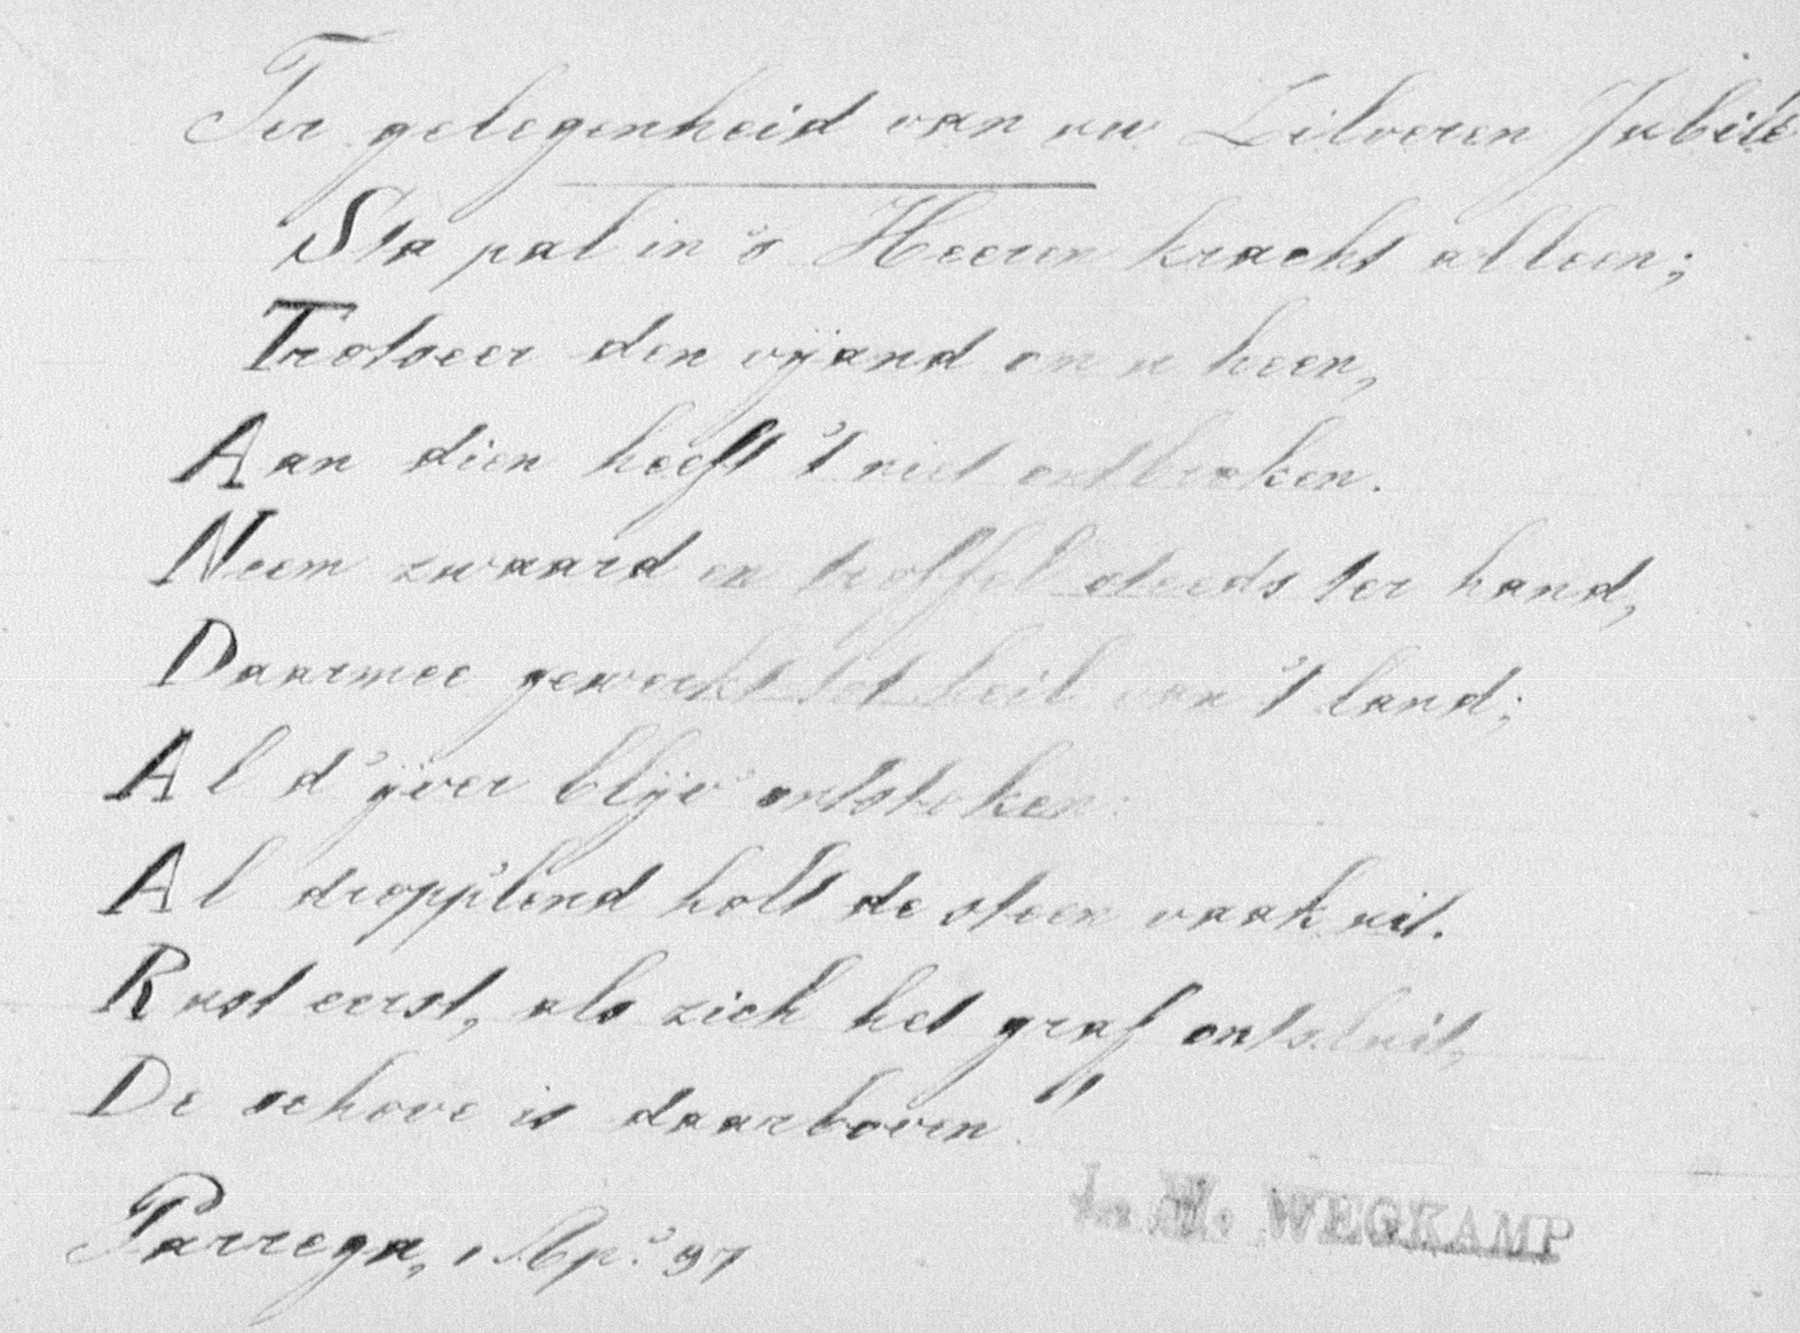 Ter gelegenheid van uw Zilveren Jubilé
Sta pal in 's Heeren kracht alleen;
Trotseer den vijand om u heen,
Aan dien heeft 't niet ontbroken.
Neem zwaard en troffel steeds ter hand,
Daarmee gewerkt tot heil van 't land;
Al d' ijver blijv' ontstoken:
Al dropp'lend holt de steen vaak uit.
Rust eerst, als zich het graf ontsluit,
De schove is daarboven"
Parrega, 1 Ap. '97
WEGKAMP